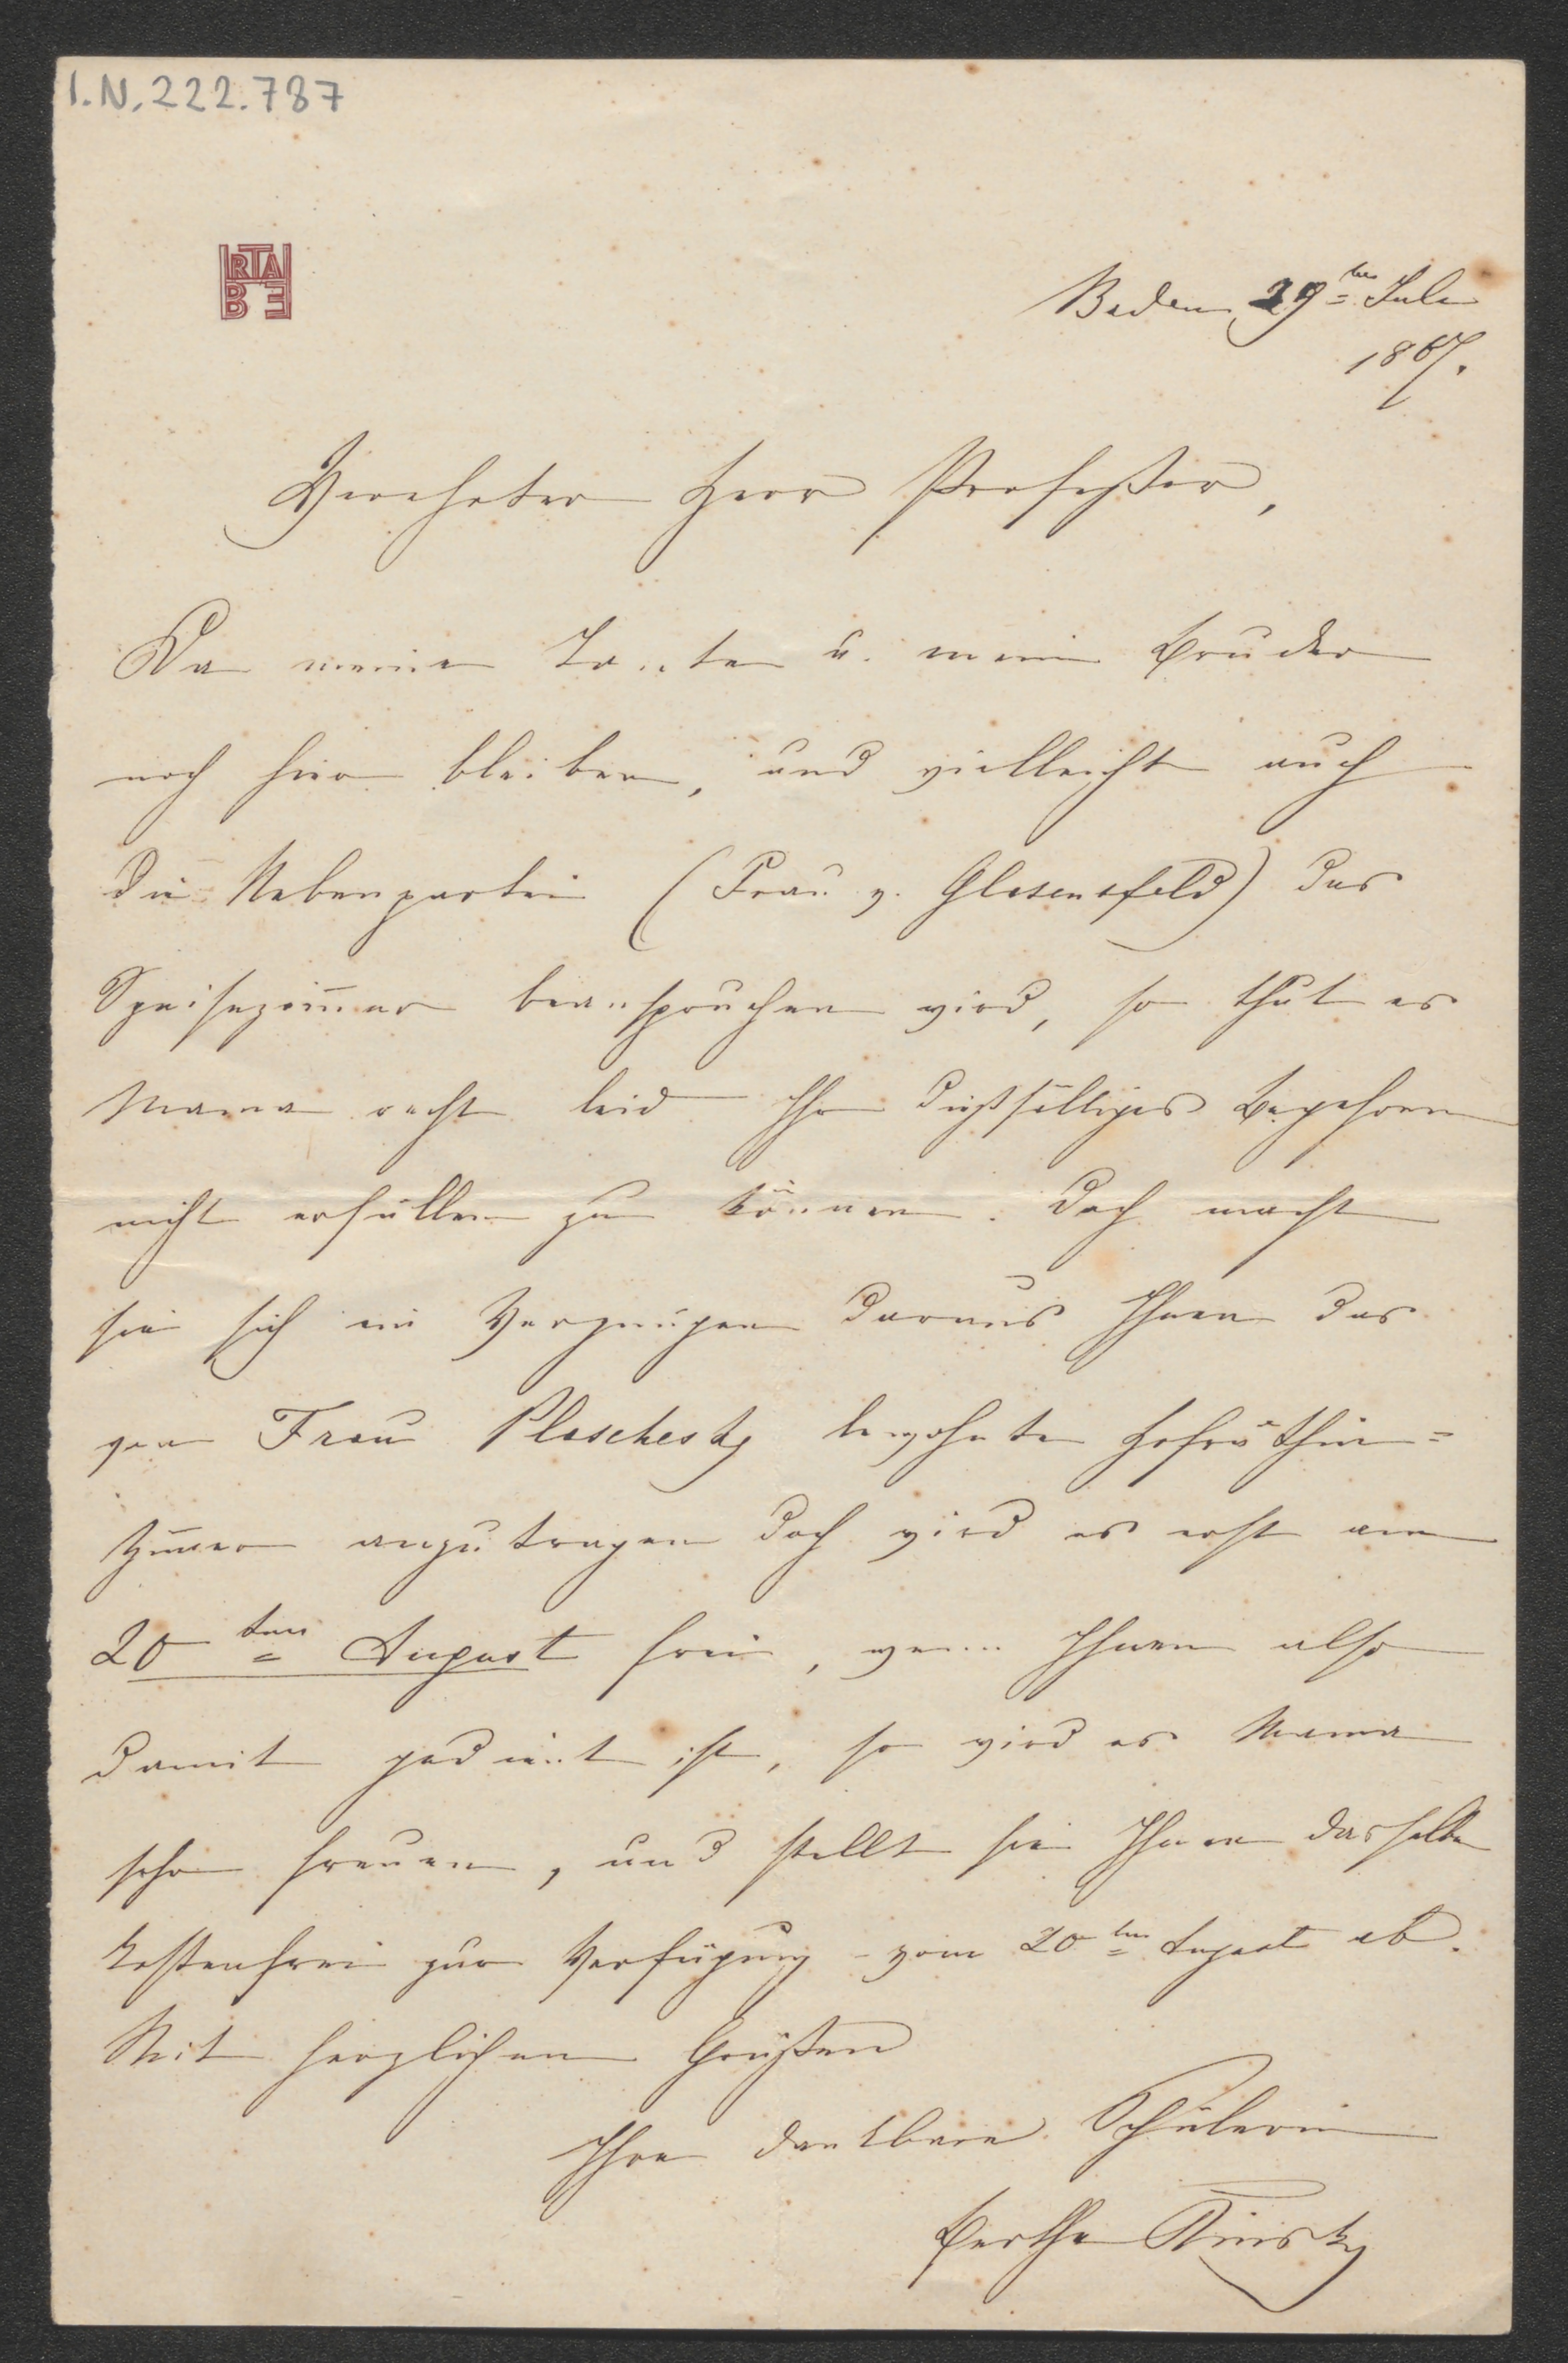 I.N. 222.787
BERTHA
Baden 29ten Juli
1867.
Verehrter Herr Professor,
Da meine Tante u. mein Bruder
noch hier bleiben, und vielleicht auch
die Nebenpartei (Frau v. Glasensfeld) das
Speisezim̄er beanspruchen wird, so thut es
Mama recht leid Ihr dießfälliges Begehren
nicht erfüllen zu können. Doch macht
sie sich ein Vergnügen daraus Ihnen das
von Frau Plaschesky bewohnte Hofräthin=
zim̄er anzutragen doch wird es erst am
20ten August frei, wenn Ihnen also
damit gedient ist, so wird es Mama
sehr freuen, und stellt sie Ihnen dasselbe
kostenfrei zur Verfügung - vom 20ten August ab.
Mit herzlichen Grüßen
Ihre dankbare Schülerin
Bertha Kinsky